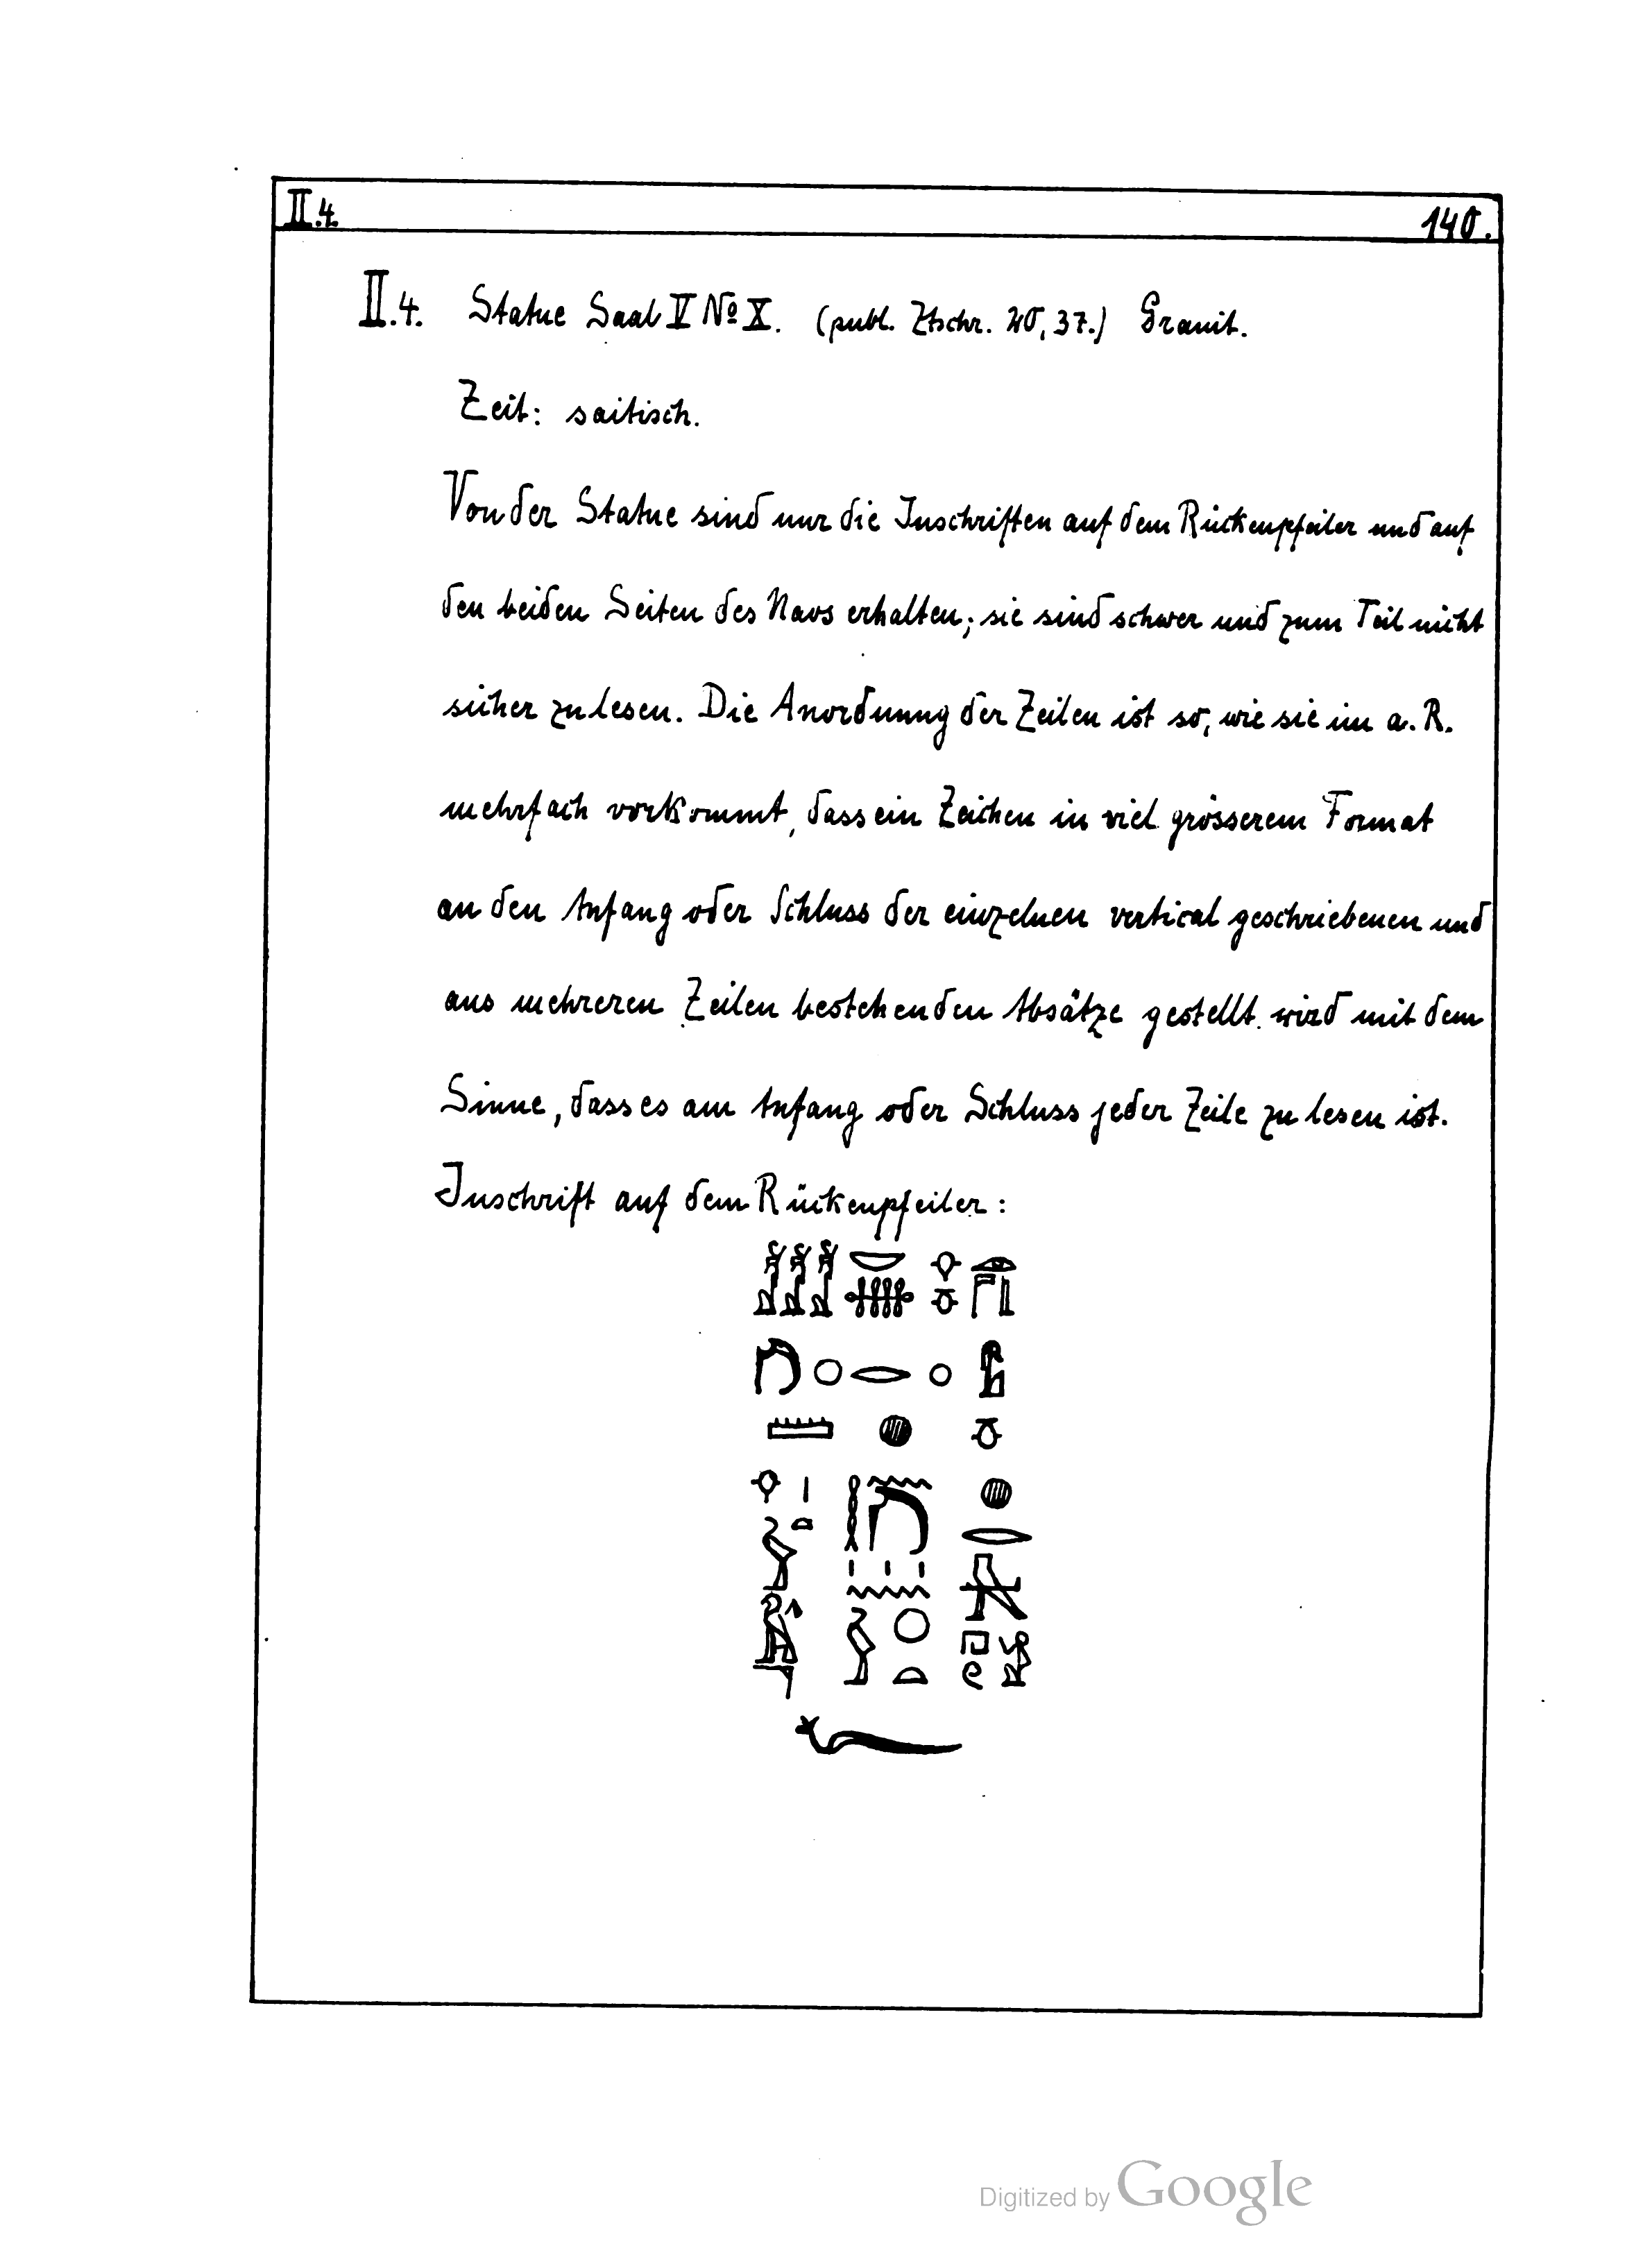 II.4. 140.
II.4. Statue Saal V No X. (publ. Ztschr. 40, 37.) Granit.
Zeit: saitisch.
Von der Statue sind nur die Inschriften auf dem Rückenpfeiler und auf
den beiden Seiten des Naos erhalten; sie sind schwer und zum Teil nicht
sicher zu lesen. Die Anordnung der Zeilen ist so, wie sie im a. R.
mehrfach vorkommt, dass ein Zeichen in viel grösserem Format
an den Anfang oder Schluss der einzelnen vertical geschriebenen und
aus mehreren Zeilen bestehenden Absätze gestellt wird mit dem
Sinne, dass es am Anfang oder Schluss jeder Zeile zu lesen ist.
Inschrift auf dem Rückenpfeiler:
Digitized by Google